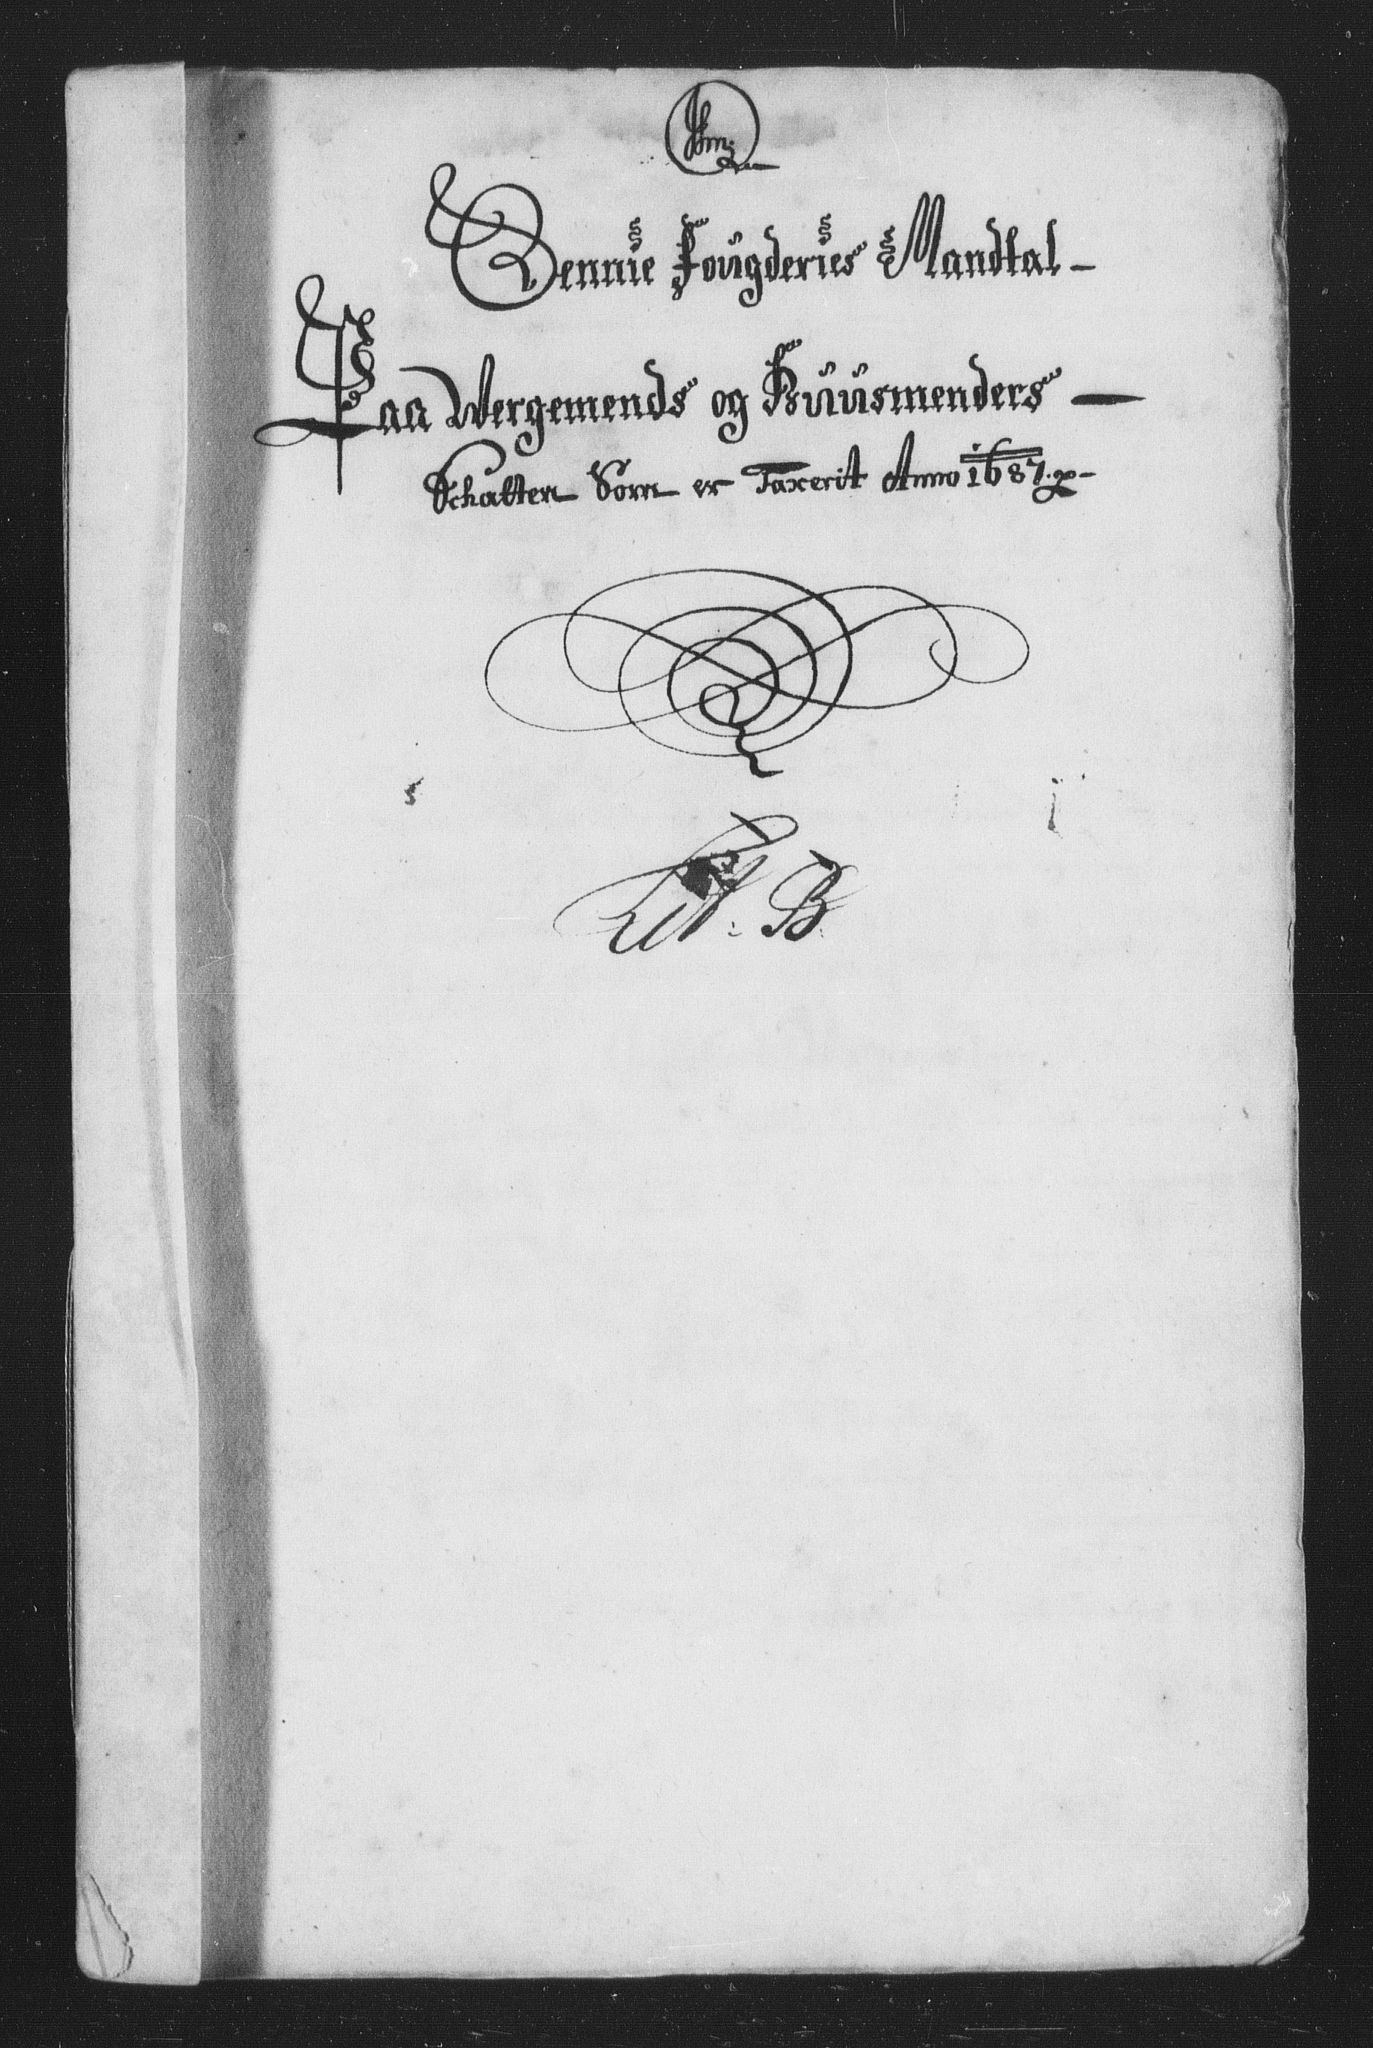 Sennie Fougderies Mandtal
Paa Wergemends og Huusmenders
Schatten Som er Taxerit Anno 1687.
Lit. B